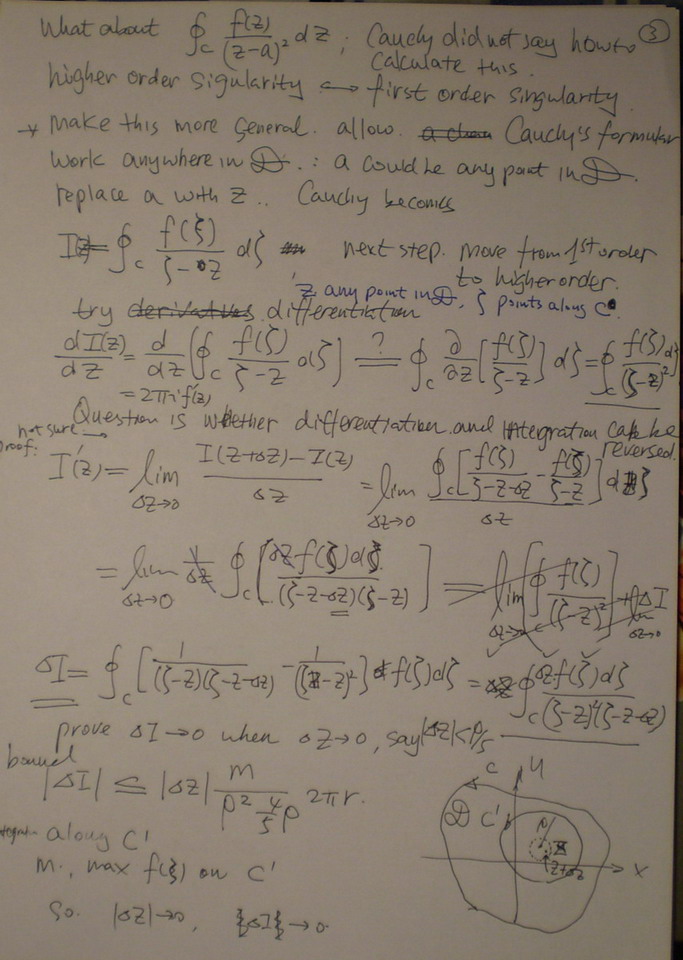 ③
What about ∮_C f(z)/(z-a)² dz ; Cauchy did not say how to
calculate this.
higher order sigularity ↔ first order singularity
→ Make this more general. allow. Cauchy's formular
work anywhere in D. : a could be any point in D.
replace a with z .. Cauchy becomes
I(z)= ∮_C f(ξ)/(ζ-z) dζ next step. move from 1st order
to higher order.
z any point in D, ζ points along C
try derivatives differentiation
dI(z)/dz = d/dz (∮_C f(ζ)/(ζ-z) dζ) =?= ∮_C ∂/∂z [f(ζ)/(ζ-z)] dζ = ∮_C f(ζ)dζ/(ζ-z)²
= 2πi f'(z)
Question is whether differentiation and integration can be
reversed.
not sure →
proof:
I'(z) = lim_{Δz→0} (I(z+Δz)-I(z))/Δz = lim_{Δz→0} ∮_C [f(ζ)/(ζ-z-Δz) - f(ζ)/(ζ-z)] dζ / Δz
= lim_{Δz→0} 1/Δz ∮_C [Δz f(ζ)dζ/((ζ-z-Δz)(ζ-z))] = lim_{Δz→0} [∮ f(ζ)/(ζ-z)²] + lim_{Δz→0} ΔI
ΔI = ∮_C [1/((ζ-z)(ζ-z-Δz)) - 1/(ζ-z)²] f(ζ)dζ = ∮_C Δz f(ζ)dζ/((ζ-z)²(ζ-z-Δz))
prove ΔI→0 when Δz→0, say |Δz|<ρ/5
bound
|ΔI| ≤ |Δz| M/(ρ² 4/5 ρ) 2πr.
along C'
M., max f(ξ) on C'
So. |Δz|→0, {ΔI}→0
C y
D C' ρ
z
z+Δz x